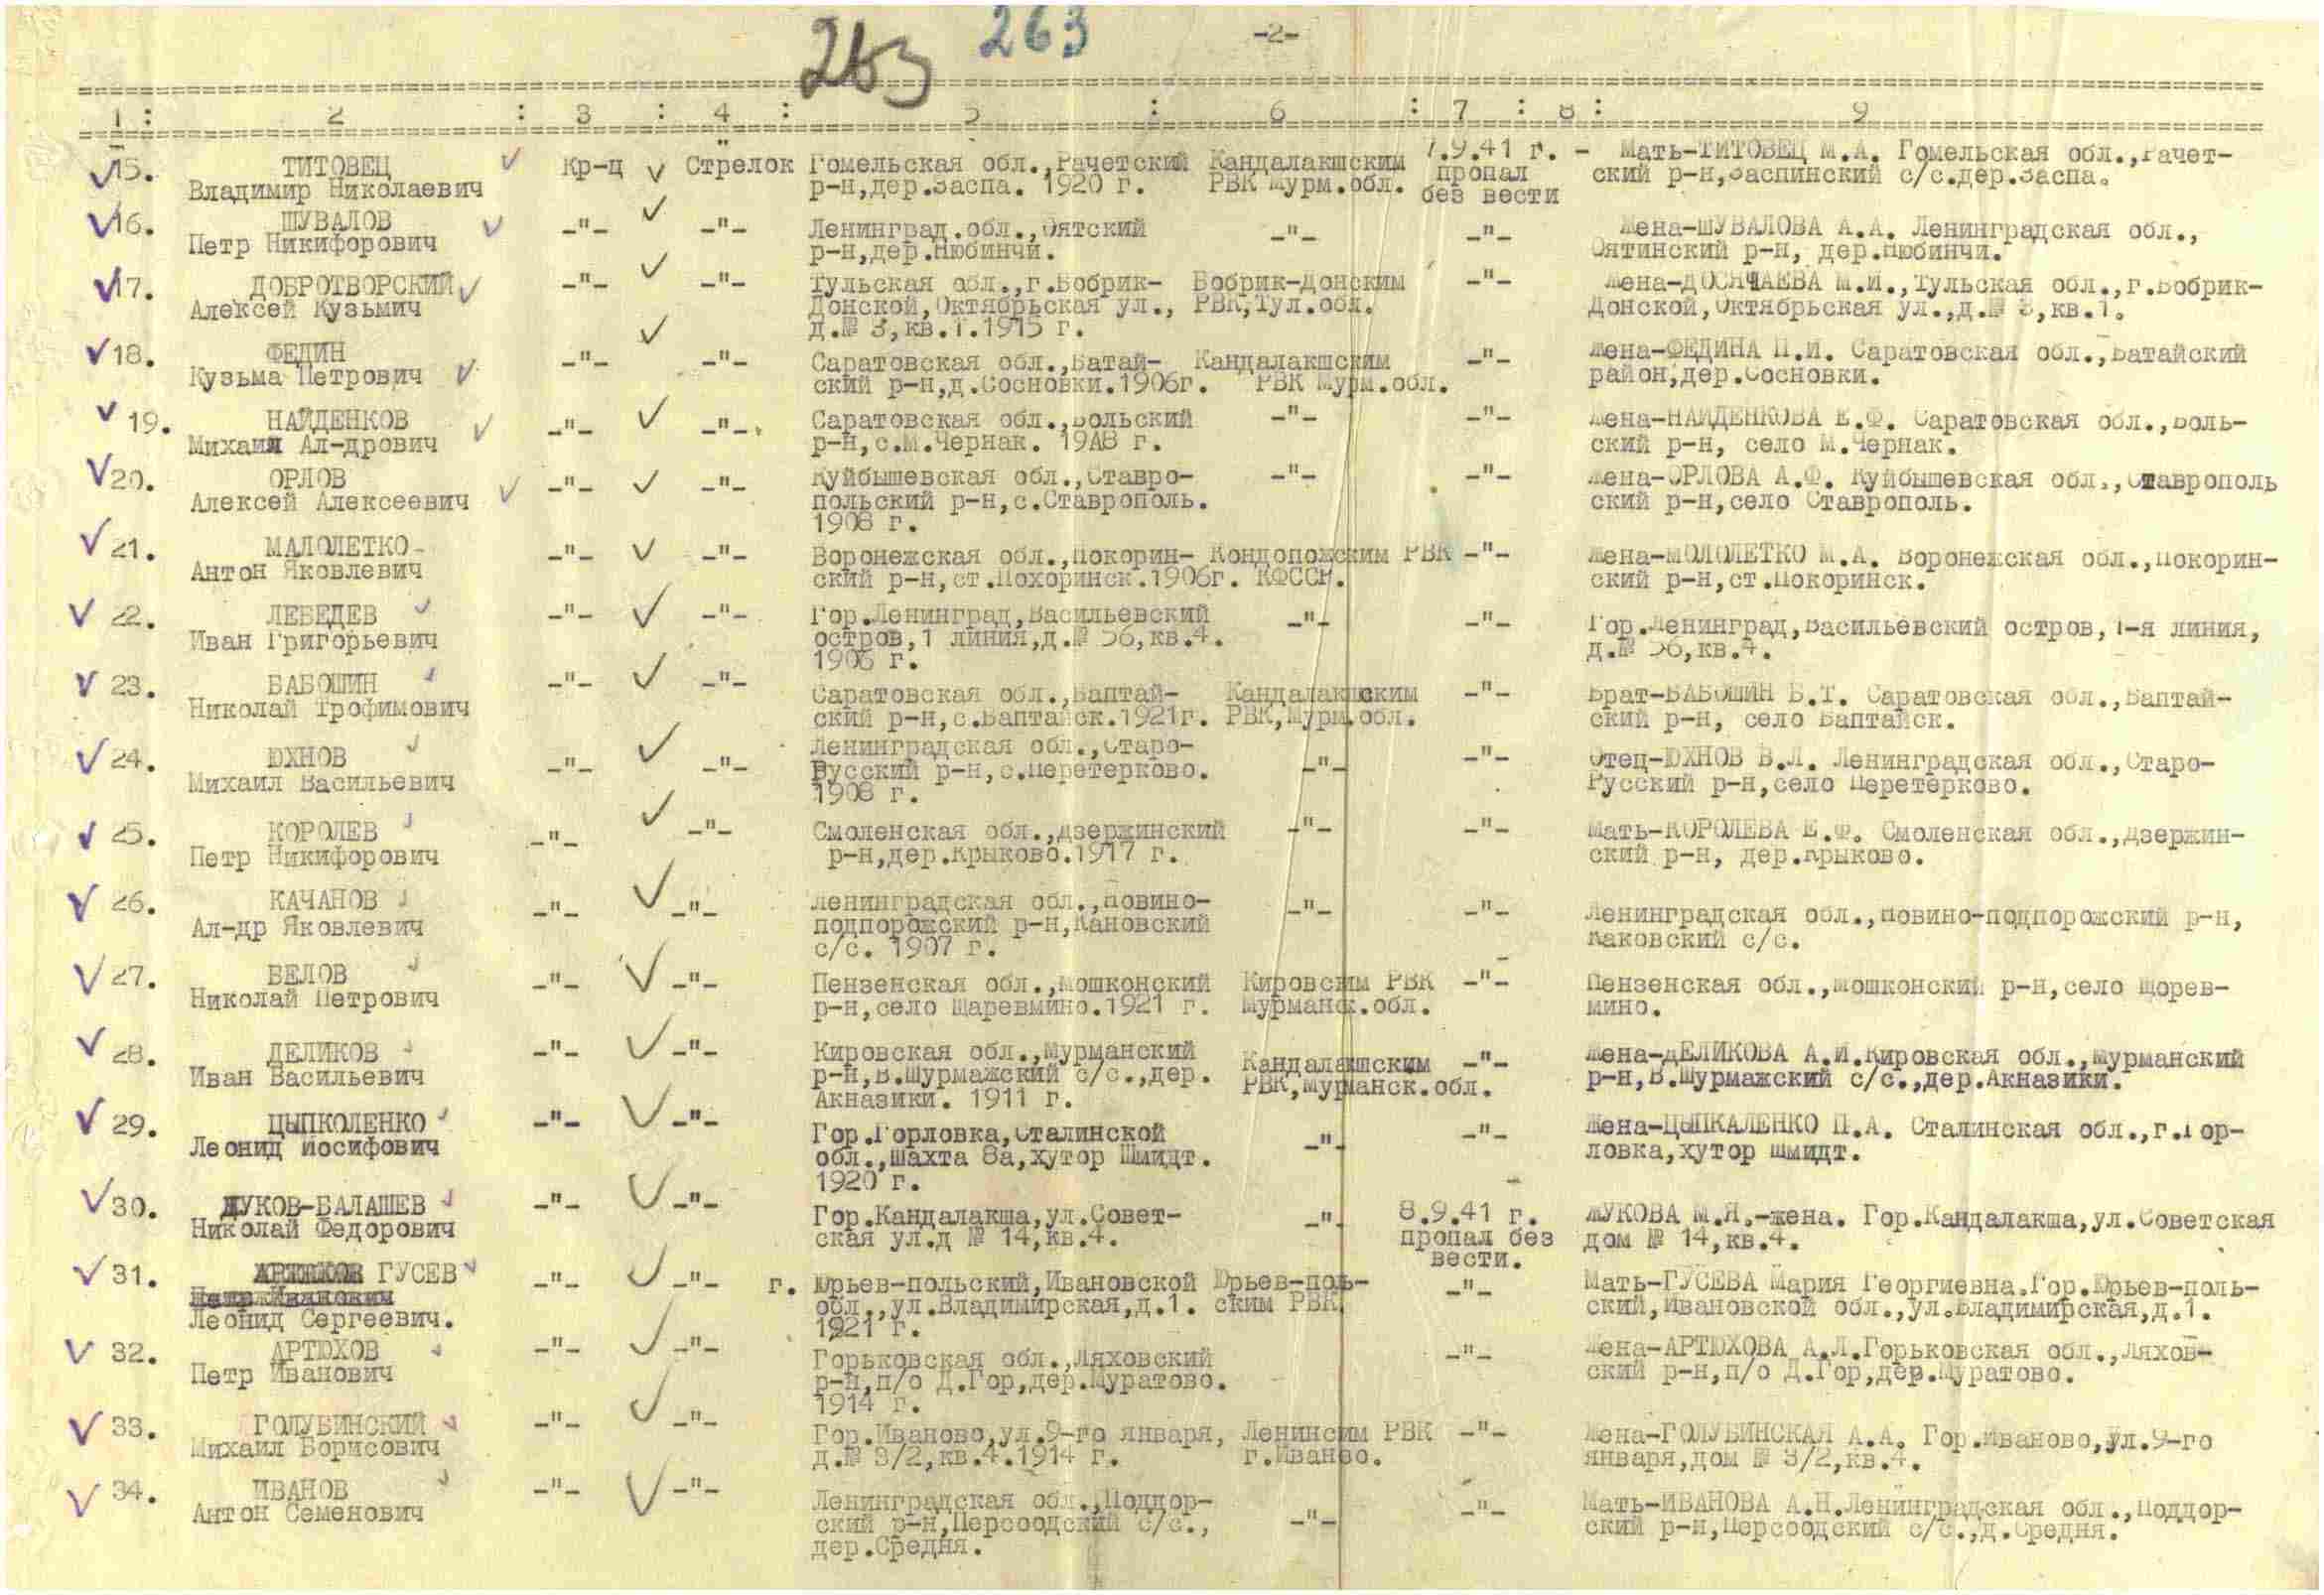 263 263 -2-
1 : 2 : 3 : 4 : 5 : 6 : 7 : 8 : 9
15. ТИТОВЕЦ Кр-ц Стрелок Гомельская обл.,Рачетский Кандалакшским 7.9.41 г. - Мать-ТИТОВЕЦ М.А. Гомельская обл.,Рачет-
Владимир Николаевич р-н,дер.Заспа. 1920 г. РВК Мурм.обл. пропал ский р-н,Заспинский с/с.дер.Заспа.
без вести
16. ШУВАЛОВ -"- -"- Ленинград.обл.,Оятский -"- -"- Жена-ШУВАЛОВА А.А. Ленинградская обл.,
Петр Никифорович р-н,дер.Нюбинчи. Оятинский р-н, дер.Нюбинчи.
17. ДОБРОТВОРСКИЙ -"- -"- Тульская обл.,г.Бобрик- Бобрик-Донским -"- Жена-ДОСЯЧАЕВА М.И.,Тульская обл.,г.Бобрик-
Алексей Кузьмич Донской,Октябрьская ул., РВК,Тул.обл. Донской,Октябрьская ул.,д.№ 3,кв.1.
д.№ 3,кв.1.1915 г.
18. ФЕДИН -"- -"- Саратовская обл.,Батай- Кандалакшским -"- Жена-ФЕДИНА П.И. Саратовская обл.,Батайский
Кузьма Петрович ский р-н,д.Сосновки.1906г. РВК Мурм.обл. район,дер.Сосновки.
19. НАЙДЕНКОВ -"- -"- Саратовская обл.,Вольский -"- -"- Жена-НАЙДЕНКОВА Е.Ф. Саратовская обл.,Воль-
Михаил Ал-дрович р-н,с.М.Чернак. 19А8 г. ский р-н, село М.Чернак.
20. ОРЛОВ -"- -"- Куйбышевская обл.,Ставро- -"- -"- Жена-ОРЛОВА А.Ф. Куйбышевская обл.,Ставрополь
Алексей Алексеевич польский р-н,с.Ставрополь. ский р-н,село Ставрополь.
1908 г.
21. МАЛОЛЕТКО -"- -"- Воронежская обл.,Покорин- Кондопожским РВК -"- Жена-МОЛОЛЕТКО М.А. Воронежская обл.,Покорин-
Антон Яковлевич ский р-н,ст.Похоринск.1906г. КФССР. ский р-н,ст.Покоринск.
22. ЛЕБЕДЕВ -"- -"- Гор.Ленинград,Васильевский -"- -"- Гор.Ленинград,Васильевский остров,1-я линия,
Иван Григорьевич остров,1 линия,д.№ 56,кв.4. д.№ 56,кв.4.
1906 г.
23. БАБОШИН -"- -"- Саратовская обл.,Баптай- Кандалакшским -"- Брат-БАБОШИН В.Т. Саратовская обл.,Баптай-
Николай Трофимович ский р-н,с.Баптайск.1921г. РВК,Мурм.обл. ский р-н, село Баптайск.
24. ЮХНОВ -"- -"- Ленинградская обл.,Старо- -"- -"- Отец-ЮХНОВ В.Л. Ленинградская обл.,Старо-
Михаил Васильевич Русский р-н,с.Перетерково. Русский р-н,село Перетерково.
1908 г.
25. КОРОЛЕВ -"- -"- Смоленская обл.,Дзержинский -"- -"- Мать-КОРОЛЕВА Е.Ф. Смоленская обл.,Дзержин-
Петр Никифорович р-н,дер.Крыково.1917 г. ский р-н, дер.Крыково.
26. КАЧАНОВ -"- -"- Ленинградская обл.,Новино- -"- -"- Ленинградская обл.,Новино-подпорожский р-н,
Ал-др Яковлевич подпорожский р-н,Кановский Каковский с/с.
с/с. 1907 г.
27. БЕЛОВ -"- -"- Пензенская обл.,Мошконский Кировсим РВК -"- Пензенская обл.,Мошконский р-н,село Щорев-
Николай Петрович р-н,село Щаревмино.1921 г. Мурманск.обл. мино.
28. ДЕЛИКОВ -"- -"- Кировская обл.,Мурманский Кандалакшским -"- Жена-ДЕЛИКОВА А.И.Кировская обл.,Мурманский
Иван Васильевич р-н,В.Шурмажский с/с.,дер. РВК,Мурманск.обл. р-н,В.Шурмажский с/с.,дер.Акназики.
Акназики. 1911 г.
29. ЦЫПКОЛЕНКО -"- -"- Гор.Горловка,Сталинской -"- -"- Жена-ЦЫПКАЛЕНКО П.А. Сталинская обл.,г.Гор-
Леонид Иосифович обл.,шахта 8а,хутор Шмидт. ловка,хутор Шмидт.
1920 г.
30. ЖУКОВ-БАЛАШЕВ -"- -"- Гор.Кандалакша,ул.Совет- -"- 8.9.41 г. ЖУКОВА М.Я.-жена. Гор.Кандалакша,ул.Советская
Николай Федорович ская ул.д № 14,кв.4. пропал без дом № 14,кв.4.
вести.
31. ГУСЕВ -"- -"- г. Юрьев-польский,Ивановской Юрьев-поль- -"- Мать-ГУСЕВА Мария Георгиевна.Гор.Юрьев-поль-
обл.,ул.Владимирская,д.1. ским РВК ский,Ивановской обл.,ул.Владимирская,д.1.
Леонид Сергеевич. 1921 г.
32. АРТЮХОВ -"- -"- Горьковская обл.,Ляховский -"- Жена-АРТЮХОВА А.Л.Горьковская обл.,Ляхов-
Петр Иванович р-н,п/о Д.Гор,дер.Муратово. ский р-н,п/о Д.Гор,дер.Муратово.
1914 г.
33. ГОЛУБИНСКИЙ -"- -"- Гор.Иваново,ул.9-го января, Ленинсим РВК -"- Жена-ГОЛУБИНСКАЯ А.А. Гор.Иваново,ул.9-го
Михаил Борисович д.№ 3/2,кв.4.1914 г. г.Иваново. января,дом № 3/2,кв.4.
34. ИВАНОВ -"- -"- Ленинградская обл.,Поддор- -"- -"- Мать-ИВАНОВА А.Н.Ленинградская обл.,Поддор-
Антон Семенович ский р-н,Персоодский с/с., ский р-н,Персоодский с/с.,д.Средня.
дер.Средня.